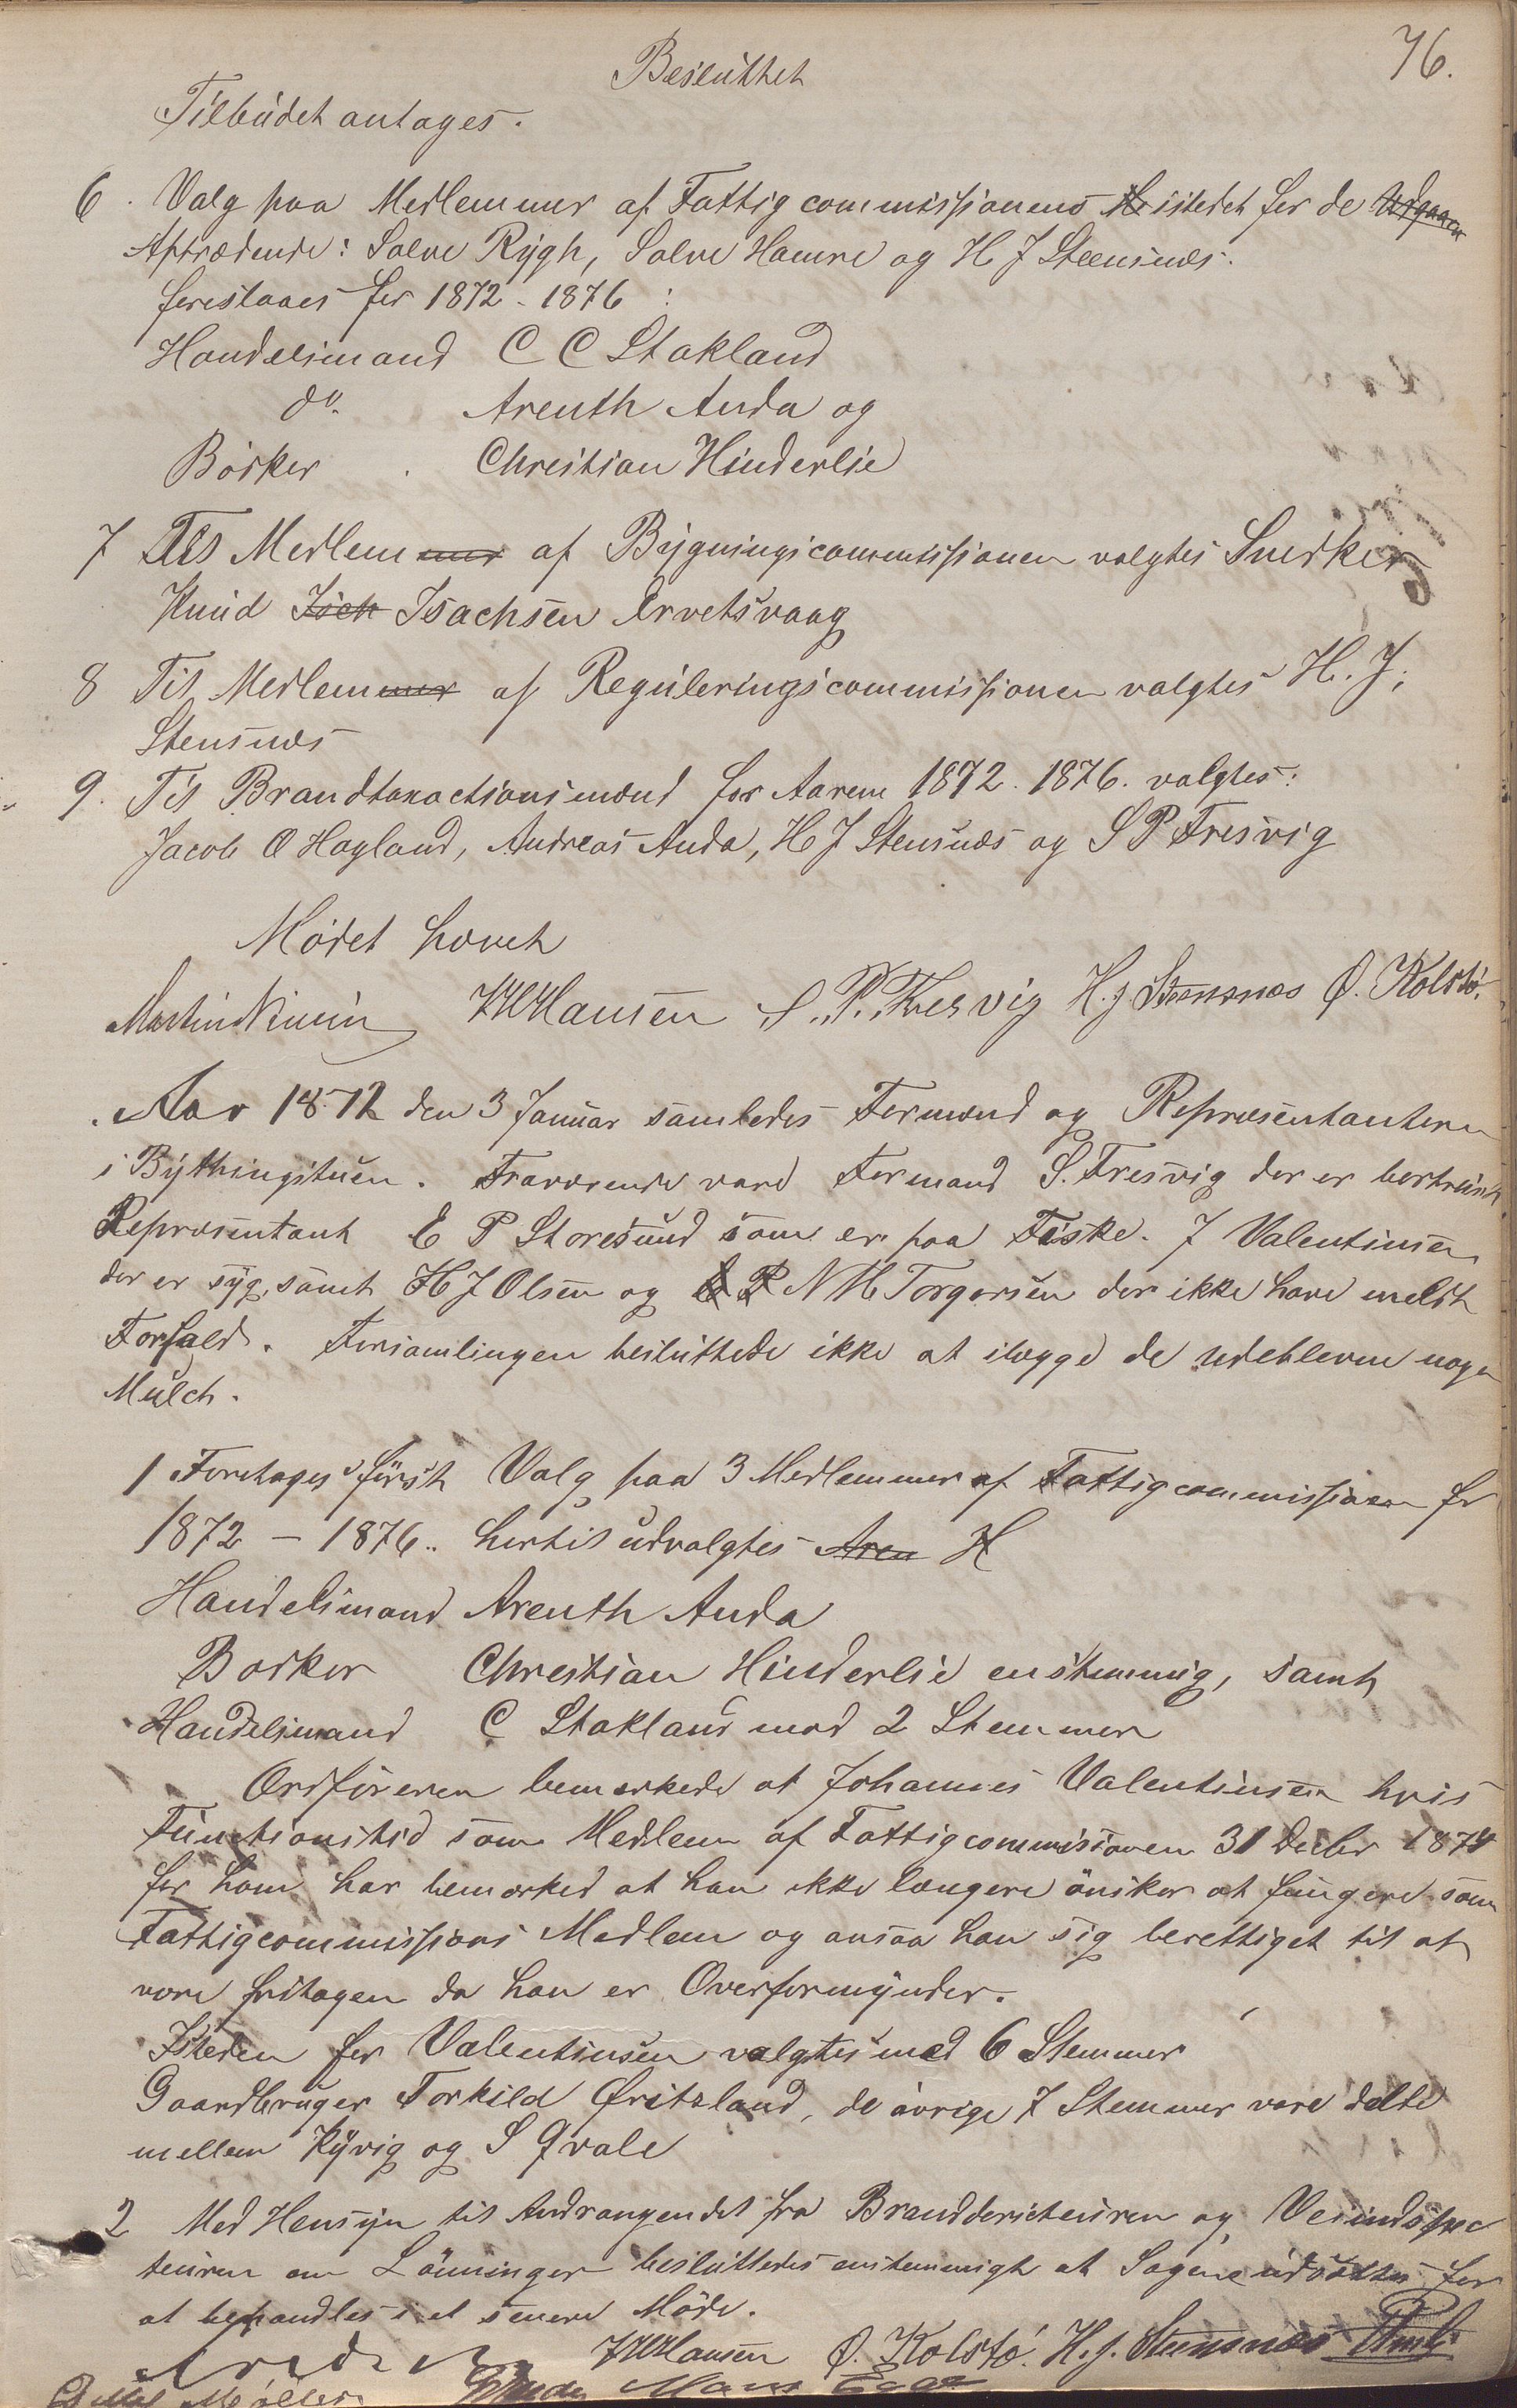 76.
Besluttet
Tilbudet antages.
6. Valg paa Medlemmer af Fattigcommissionens istedet for de
Aftrædende: Salve Rygh, Salve Hamre og H J Steensnæs.
foreslaaes for 1872-1876:
Handelsmand C C Stakland
do. Arenth Anda og
Bødker Christian Hinderlie
7 Til Medlemmer af Bygningscommissionen valgtes Snedker
Knud Isach Isachsen Arvetsvaag
8 Til Medlemmer af Reguleringscommissionen valgtes H. J.
Stensnæs
9. Til Brandtaxactionsmænd for Aarene 1872-1876. valgtes:
Jacob O Hagland, Andreas Anda, H J Stensnæs og S P Fresvig
Mødet hævet
Martin Nimin HHansen S. P. Fresvig H. J. Steensnæs O. Kolstö.
Aar 1872 den 3 Januar samledes Formænd og Repræsentanterne
i Bythingstuen. Fraværende vare Formand S. Fresvig der er bortreist
Repræsentant E P Storesund som er paa Fiske. J Valentinsen
der er syg, samt H J Olsen og E P N M Torgersen der ikke have meldt
Forfald. Forsamlingen besluttede ikke at ilægge de udeblevne nogen
Mulct.
1 Foretages först Valg paa 3 Medlemmer af Fattigcommissionen for
1872 - 1876. hertil udvalgtes Aren H
Handelsmand Arenth Anda
Bødker Christian Hinderlie enstemmig, samt
Handelsmand C Stakland mod 2 Stemmer
Ordföreren bemærkede at Johannes Valentinsen hvis
Functionstid som Medlem af Fattigcommissionen 31 Decbr 1874
for ham har bemærked at han ikke længere önsker at fungere som
Fattigcommissions Medlem og ansaa han sig berettiget til at
være fritagen da han er Overformynder.
Isteden for Valentinsen valgtes med 6 Stemmer
Gaardbruger Torkild Øritsland, de övrige 7 Stemmer vare delte
mellem Kyvig og S Qvale
2 Med Hensyn til Andragendet fra Branddirecteuren og Veiindspec
teuren om Lönninger besluttedes enstemmigt at Sagen udsættes for
at behandles i et senere Möde.
HHansen O. Kolstö. H. J. Steensnæs
Møller Hans